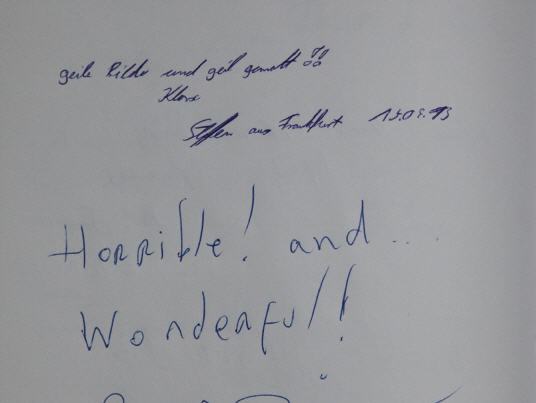 geile Bilder und geil gemalt !!
Steffen aus Frankfurt 15.08.93
Horrible! and...
Wonderful!